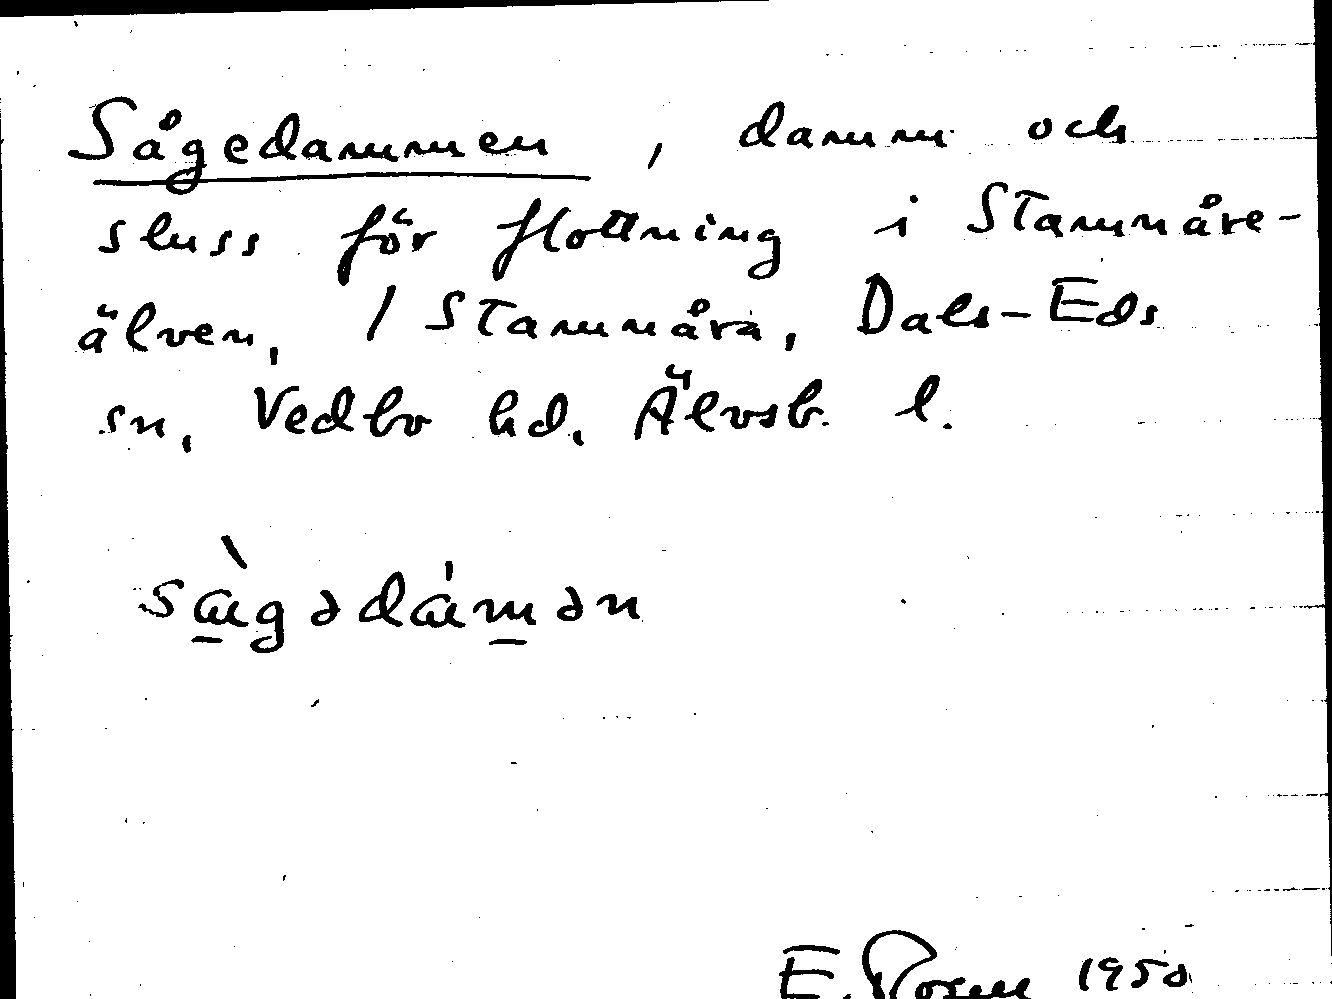 Sågedammen, damm och
sluss för flottning i Stammåre-
älven, / Stammåra, Dals-Eds
sn, Vedbo hd. Älvsb. l.
E. Rosm 1950